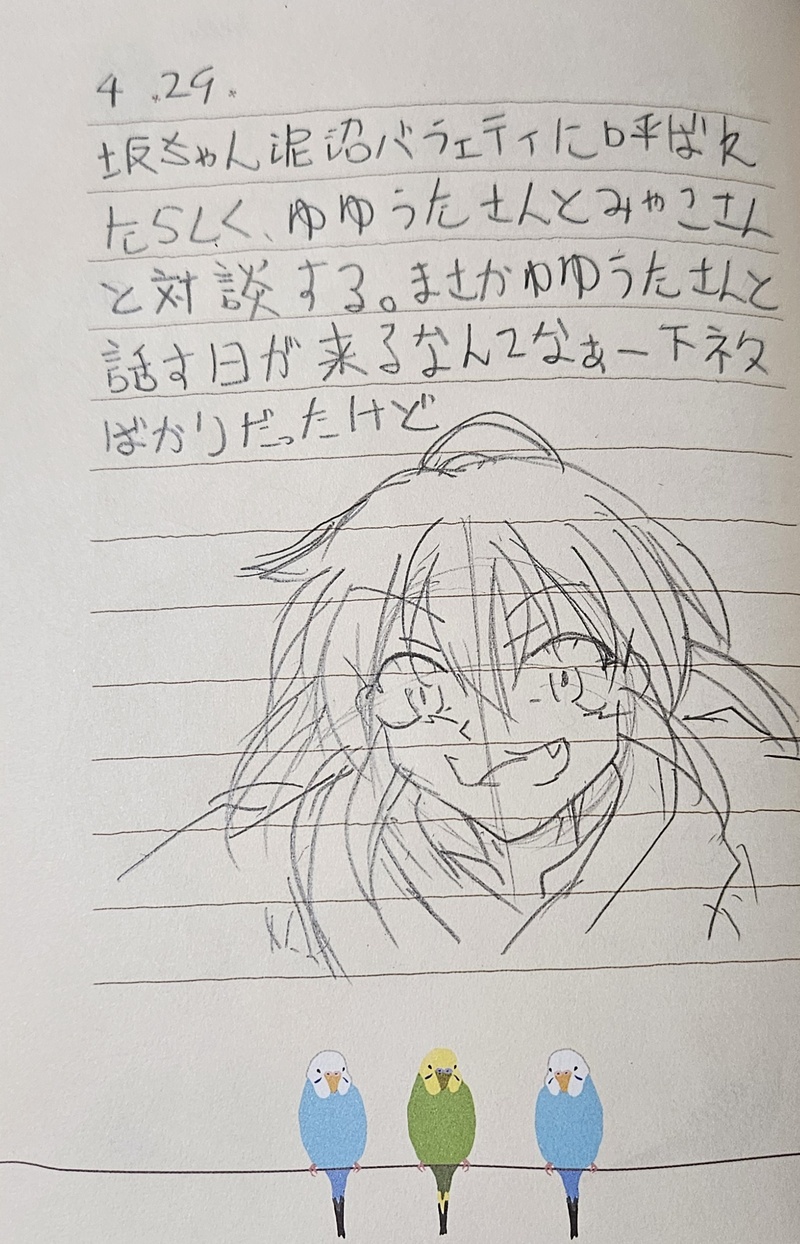 4.29.
坂ちゃん泥沼バラエティに呼ばれ
たらしく、ゆゆうたさんとみゃこさん
と対談する。まさかゆゆうたさんと
話す日が来るなんてなぁー下ネタ
ばかりだったけど